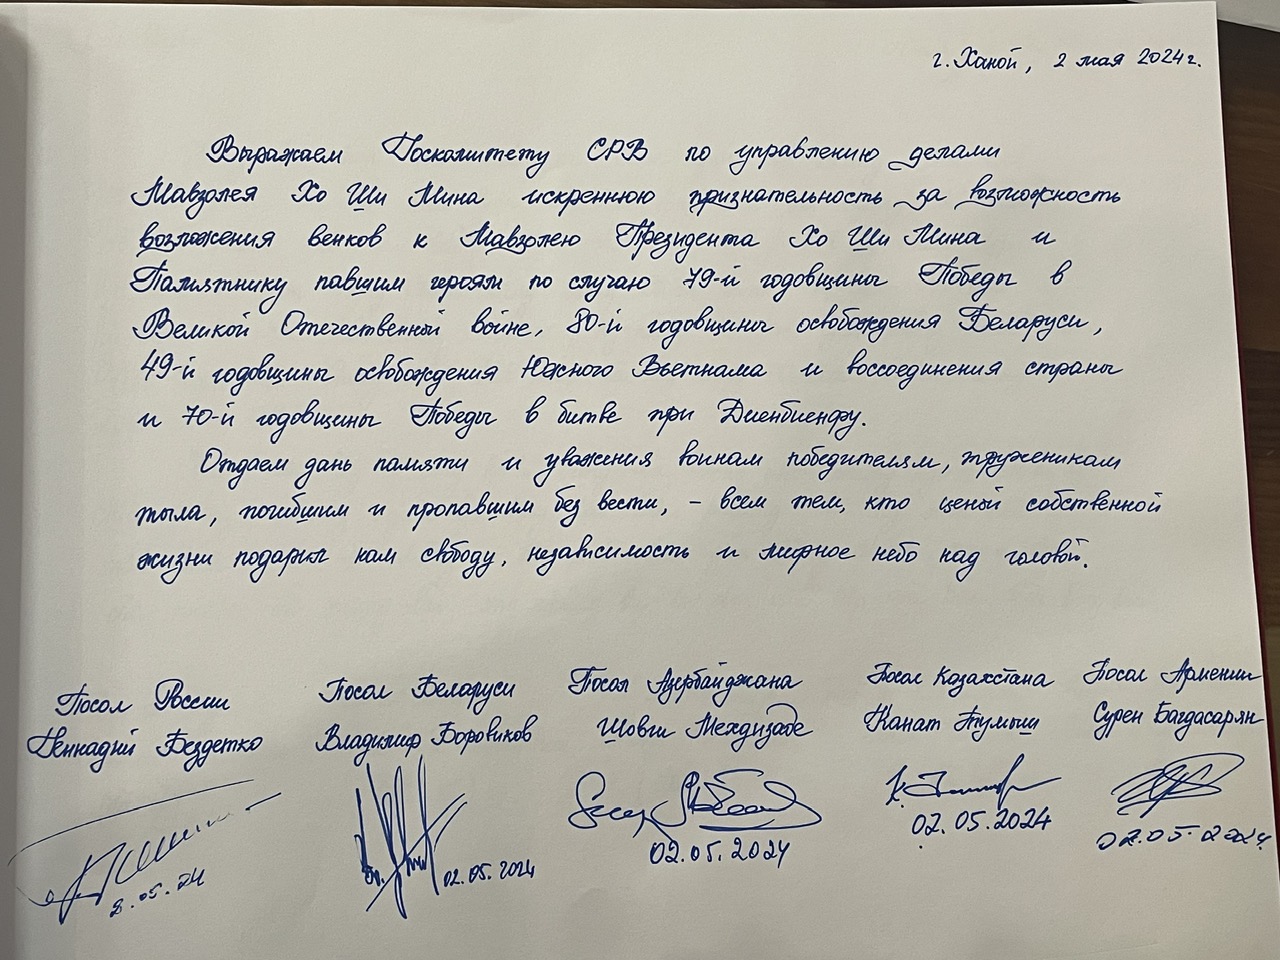 г. Ханой, 2 мая 2024 г.
Выражаем Госкомитету СРВ по управлению делами
Мавзолея Хо Ши Мина искреннюю признательность за возможность
возложения венков к Мавзолею Президента Хо Ши Мина и
Памятнику павшим героям по случаю 79-й годовщины Победы в
Великой Отечественной войне, 80-й годовщины освобождения Беларуси,
49-й годовщины освобождения Южного Вьетнама и воссоединения страны
и 70-й годовщины Победы в битве при Диенбиенфу.
Отдаем дань памяти и уважения воинам победителям, труженикам
тыла, погибшим и пропавшим без вести, – всем тем, кто ценой собственной
жизни подарил нам свободу, независимость и мирное небо над головой.
Посол России
Геннадий Бездетко
8.05.24
Посол Беларуси
Владимир Боровиков
02.05.2024
Посол Азербайджана
Шовги Мехдизаде
02.05.2024
Посол Казахстана
Канат Тумыш
02.05.2024
Посол Армении
Сурен Багдасарян
02.05.2024